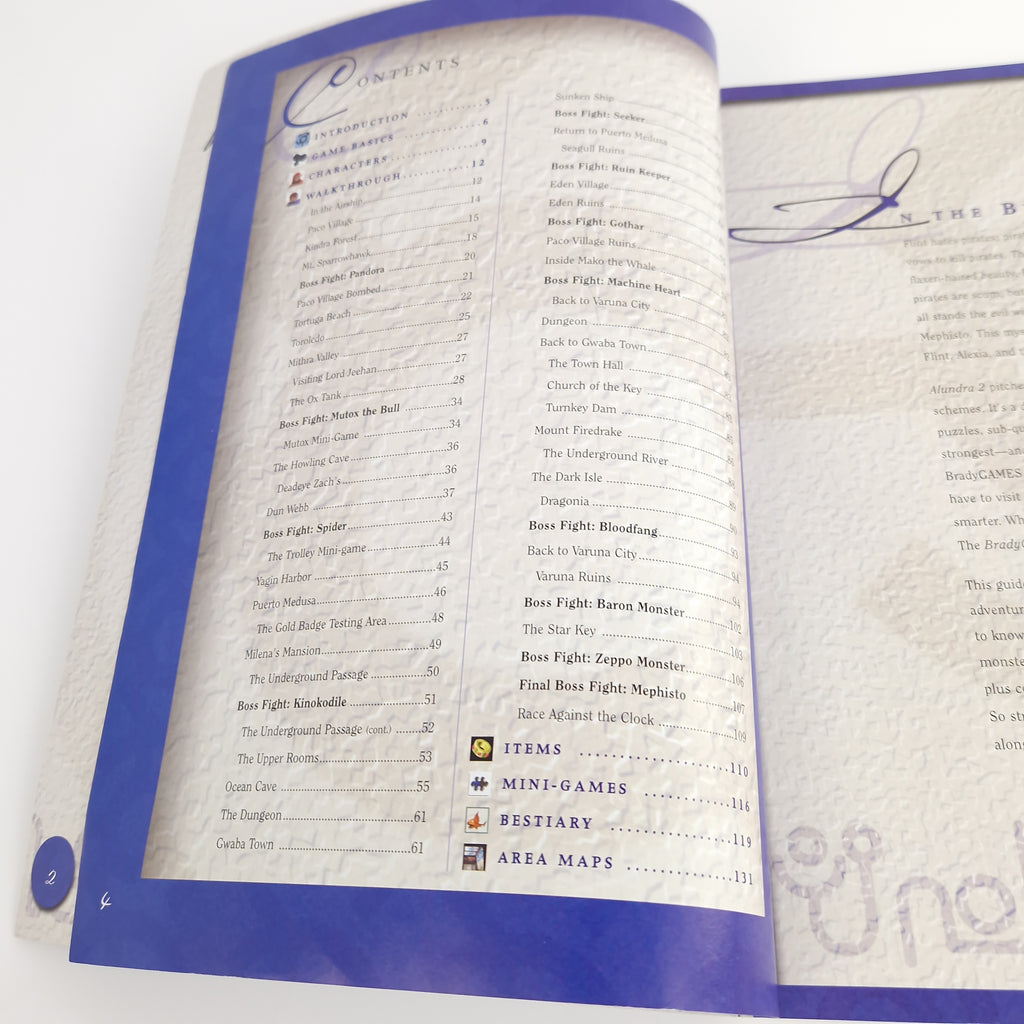 CONTENTS
INTRODUCTION ............5
GAME BASICS ............6
CHARACTERS ............9
WALKTHROUGH............12
In the Airship............12
Paco Village ............14
Kindra Forest............15
Mt. Sparrowhawk............18
Boss Fight: Pandora ............20
Paco Village Bombed............21
Tortuga Beach ............22
Toroledo............25
Mithra Valley............27
Visiting Lord Jeehan............27
The Ox Tank............28
Boss Fight: Mutox the Bull ............34
Mutox Mini-Game ............34
The Howling Cave............36
Deadeye Zach's............36
Dun Webb ............37
Boss Fight: Spider............43
The Trolley Mini-game............44
Yagin Harbor ............45
Puerto Medusa............46
The Gold Badge Testing Area............48
Milena's Mansion............49
The Underground Passage ............50
Boss Fight: Kinokodile ............51
The Underground Passage (cont.) ........52
The Upper Rooms............53
Ocean Cave ............55
The Dungeon............61
Gwaba Town ............61
Sunken Ship
Boss Fight: Seeker
Return to Puerto Medusa
Seagull Ruins
Boss Fight: Ruin Keeper
Eden Village
Eden Ruins
Boss Fight: Gothar
Paco Village Ruins
Inside Mako the Whale
Boss Fight: Machine Heart
Back to Varuna City
Dungeon
Back to Gwaba Town
The Town Hall
Church of the Key
Turnkey Dam
Mount Firedrake
The Underground River
The Dark Isle
Dragonia
Boss Fight: Bloodfang
Back to Varuna City
Varuna Ruins
Boss Fight: Baron Monster............102
The Star Key ............103
Boss Fight: Zeppo Monster............106
Final Boss Fight: Mephisto ............107
Race Against the Clock ............109
ITEMS ............110
MINI-GAMES ............116
BESTIARY ............119
AREA MAPS ............131
2
4
IN THE B
Flint hates pirates;
vows to kill pirates. Th
flaxen-haired beauty,
pirates are scum, but
all stands the evil
Mephisto. This mys
Flint, Alexia, and
Alundra 2 pitche
schemes. It's a
puzzles, sub-qu
strongest—an
BradyGAMES
have to visit
smarter. Wh
The Brady
This guid
adventur
to know
monste
plus c
So str
along